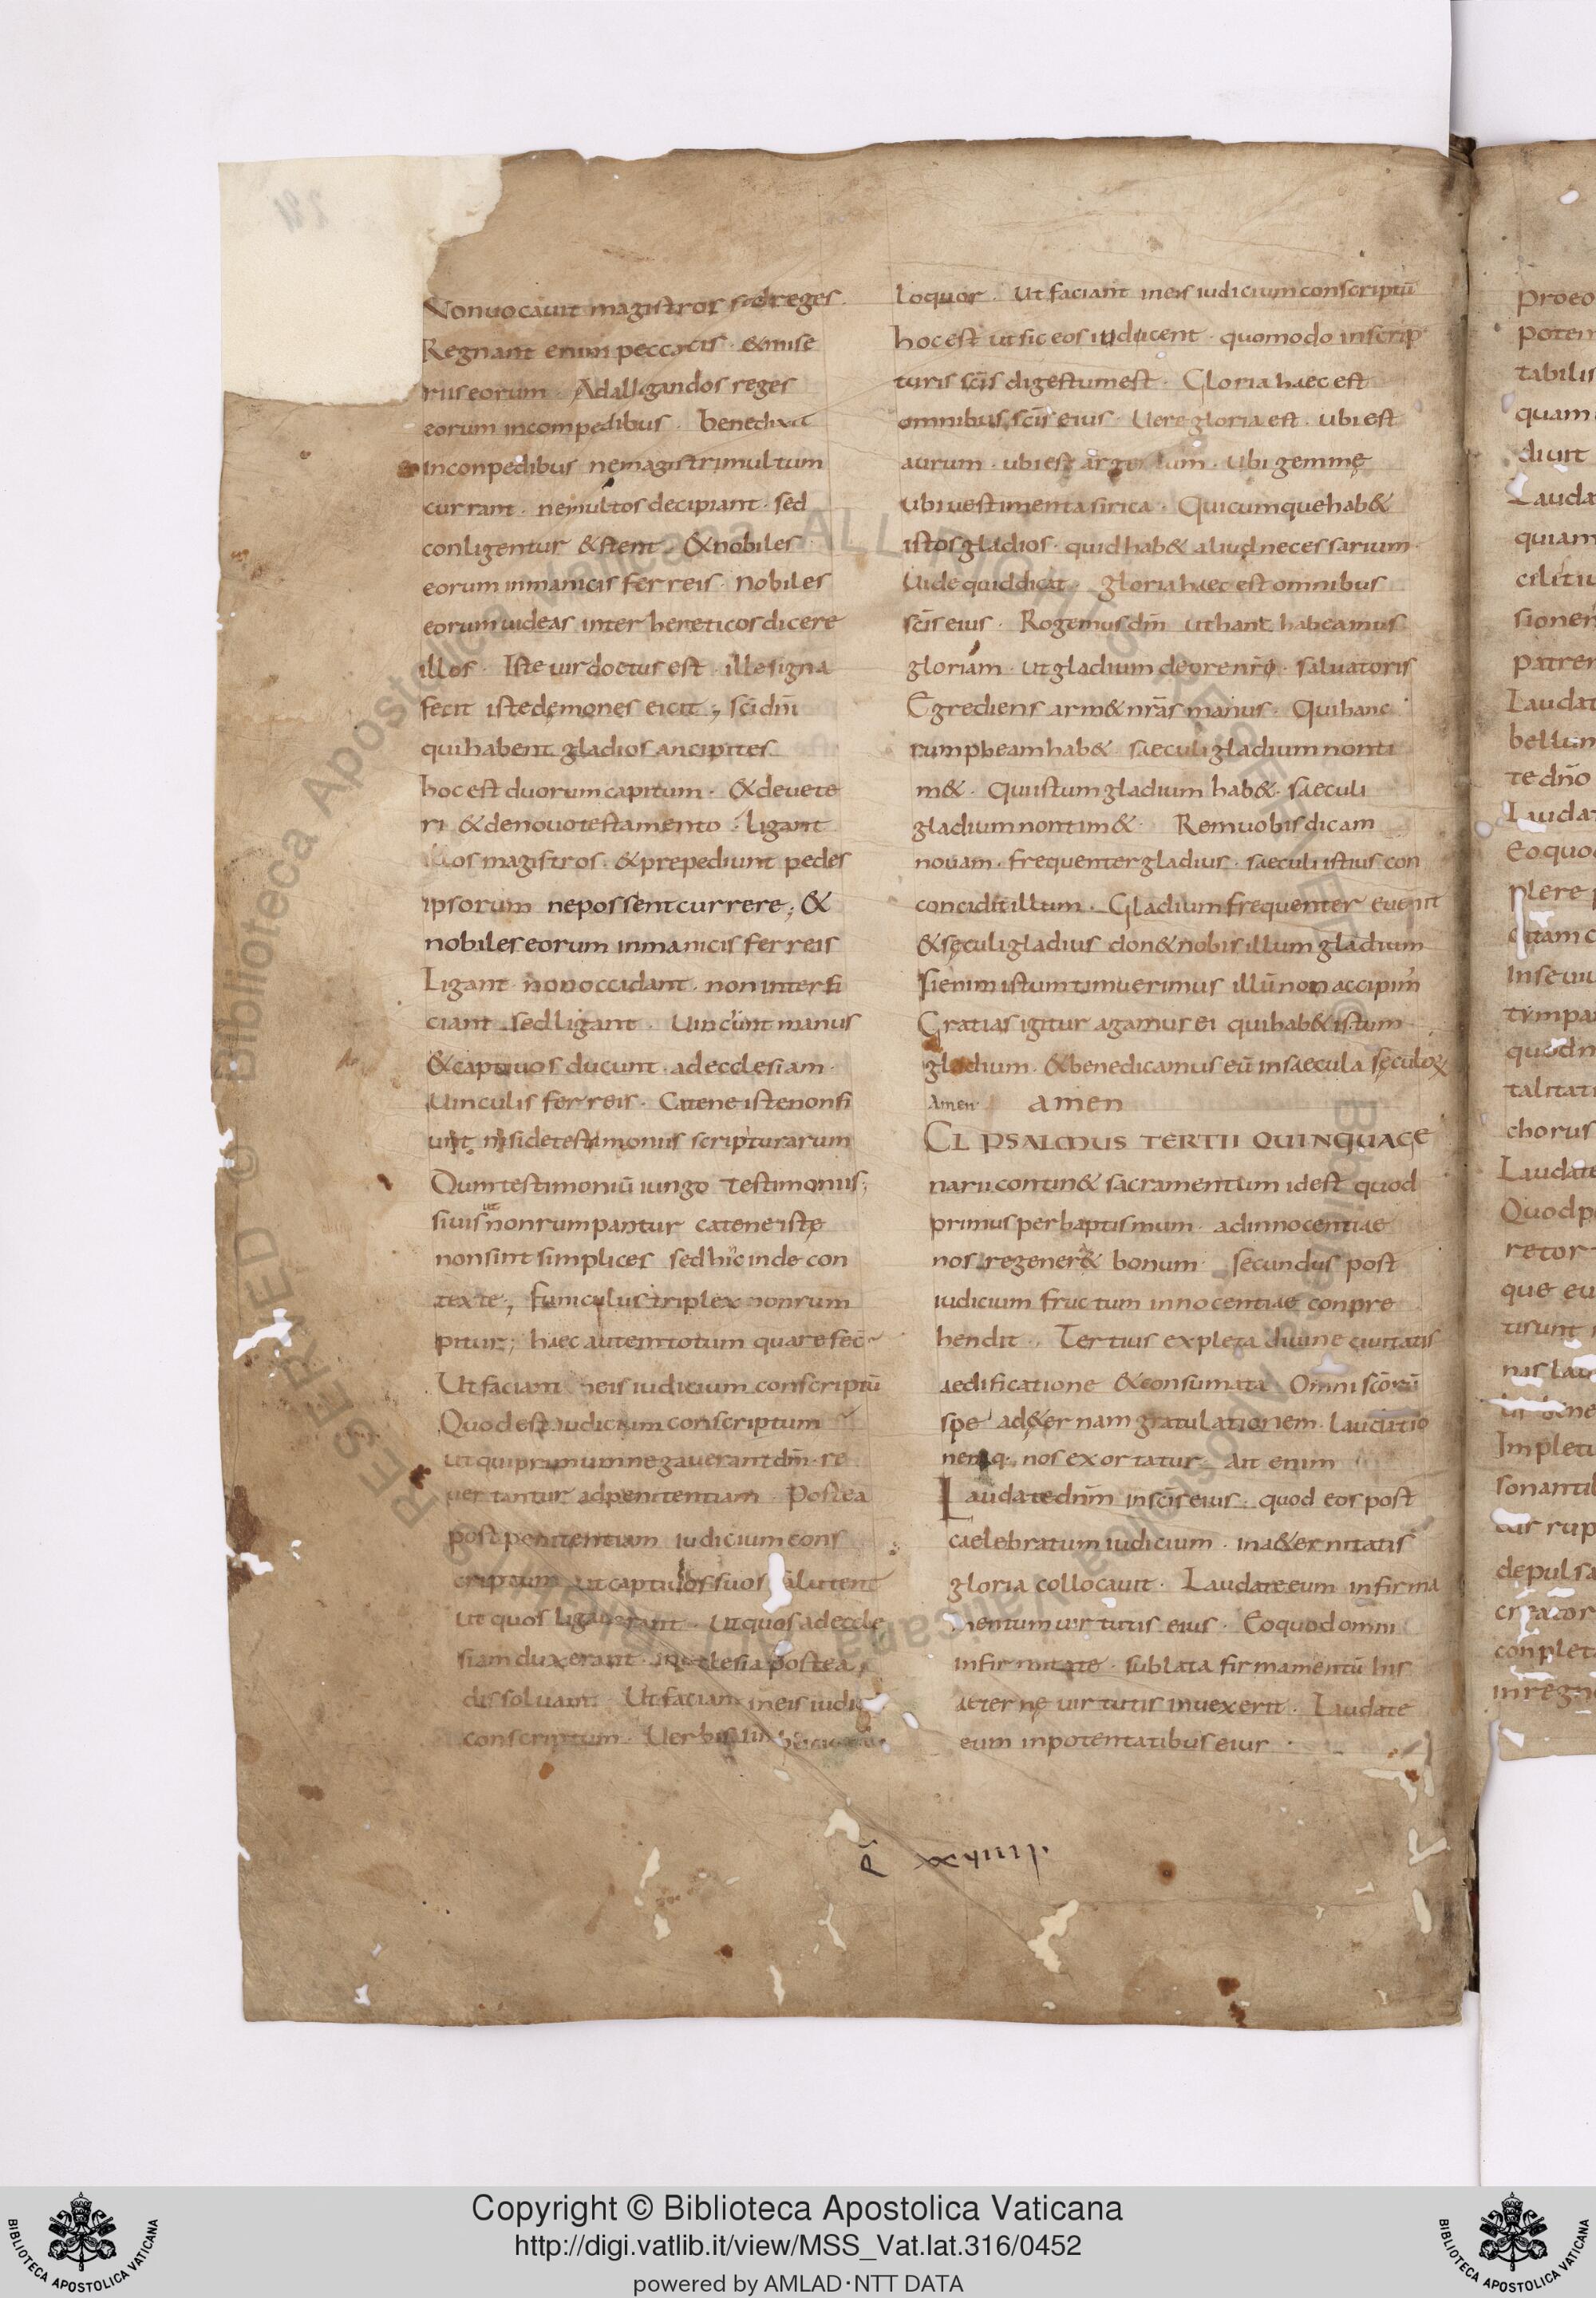 Nonuocauit magistros sed reges.
Regnant enim peccatis · &mise
riis eorum · Adalligandos reges
eorum incompedibus · benedixit
inconpedibus nemagistri multum
currant · nemultos decipiant · sed
conligentur &stent · &nobiles
eorum inmanicis ferreis · Nobiles
eorum uideas inter hereticos dicere
illos · Iste uir doctus est · ille signa
fecit iste dęmones eicit ; sc̄i dn̄i
qui habent gladios ancipites
hoc est duorum capitum · &deuete
ri &denouo testamento · Ligant
illos magistros · &prepediunt pedes
ipsorum nepossent currere ; &
nobiles eorum inmanicis ferreis
Ligant · nonoccidant · non interfi
ciant · sed ligant · Uinciunt manus
&captiuos ducunt · adecclesiam ·
Uinculis ferreis · Catene iste non fi
unt nisi detestimoniis scripturarum
Qum testimoniū iungo testimoniis ;
siuis ut non rumpantur catene istę
non sint simplices sed hinc inde con
texte ; funiculus triplex non rum
pitur ; haec autem totum quare fec̄
Ut faciant ineis iudicium conscriptū
Quod est iudicium conscriptum
ut qui primum negauerant dm̄ · re
uertantur adpenitentiam · Postea
post penitentiam iudicium cons
criptum ut captiuos suos salutent
ut quos ligauerant · Ut quos adeccle
siam duxerant · inecclesia postea
dissoluant · Ut faciant ineis iudi
conscriptum · Uerbis
loquor · Ut faciant ineis iudicium conscriptū
hoc est ut sic eos iudicent · quomodo inscrip
turis sc̄is digestum est · Gloria haec est
omnibus sc̄is eius · Uere gloria est · ubi est
aurum · ubi est argentum · ubi gemmę
ubi uestimenta sirica · Quicumque hab&
istos gladios · quid hab& aliud necessarium ·
Uide quid dicat · gloria haec est omnibus
sc̄is eius · Rogemus dn̄m ut hanc habeamus
gloriam · ut gladium deore nr̄o · saluatoris
Egrediens arm& nr̄as manus · Qui hanc
rumpheam hab& saeculi gladium nonti
m& · Qui istum gladium hab& · saeculi
gladium nontim& · Rem uobis dicam
nouam · frequenter gladius · saeculi istius con
concidit illum · Gladium frequenter euenit
&sęculi gladius don& nobis illum gladium
Sienim istum timuerimus illū non accipim'
Gratias igitur agamus ei qui hab& istum
gladium · &benedicamus eū insaecula sęculoꝝ
Amen amen
CL PSALMUS TERTII QUINQUAGE
narii contin& sacramentum id est quod
primus per baptismum · adinnocentiae
nos regener& bonum · secundus post
iudicium fructum innocentiae conpre
hendit · Tertius expleta diuine ciuitatis
aedificatione &consumata Omni sc̄orū
spe ad&ernam gratulationem · laudatio
nemq· nos exortatur · Ait enim
Laudate dn̄m insc̄is eius · quod eos post
caelebratum iudicium · ina&ernitatis
gloria collocauit · Laudate eum infirma
mentum uirtutis eius · Eo quod omni
infirmitate · sublata firmamentū his
aeternę uirtutis inuexerit · Laudate
eum inpotentatibus eius ·
RESERVED © Biblioteca Apostolica Vaticana ALL RIGHTS RESERVED © Biblioteca Apostolica Vaticana ALL RIGHTS
Copyright © Biblioteca Apostolica Vaticana
http://digi.vatlib.it/view/MSS_Vat.lat.316/0452
powered by AMLAD·NTT DATA
BIBLIOTECA APOSTOLICA VATICANA
BIBLIOTECA APOSTOLICA VATICANA